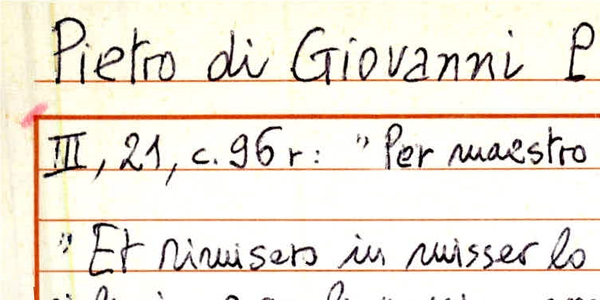 Pietro di Giovanni P
III, 21, c. 96 r: "Per maestro
"Et rimisero in misser lo